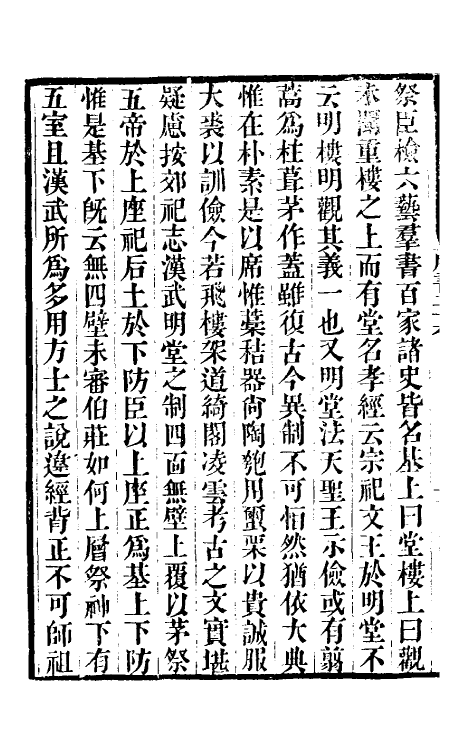 祭臣檢六藝羣書百家諸史皆名基上曰堂樓上曰觀
未聞重樓之上而有堂名孝經云宗祀文王於明堂不
云明樓明觀其義一也又明堂法天聖王示儉或有翦
蒿爲柱葺茅作蓋雖復古今異制不可恒然猶依大典
惟在朴素是以席惟蒿秸器尙陶匏用蠒栗以貴誠服
大裘以訓儉今若飛樓架道綺閣凌雲考古之文實堪
疑慮按郊祀志漢武明堂之制四面無壁上覆以茅祭
五帝於上座祀后土於下防臣以上座正爲基上下防
惟是基下旣云無四壁未審伯莊如何上層祭神下有
五室且漢武所爲多用方士之說違經背正不可師祖